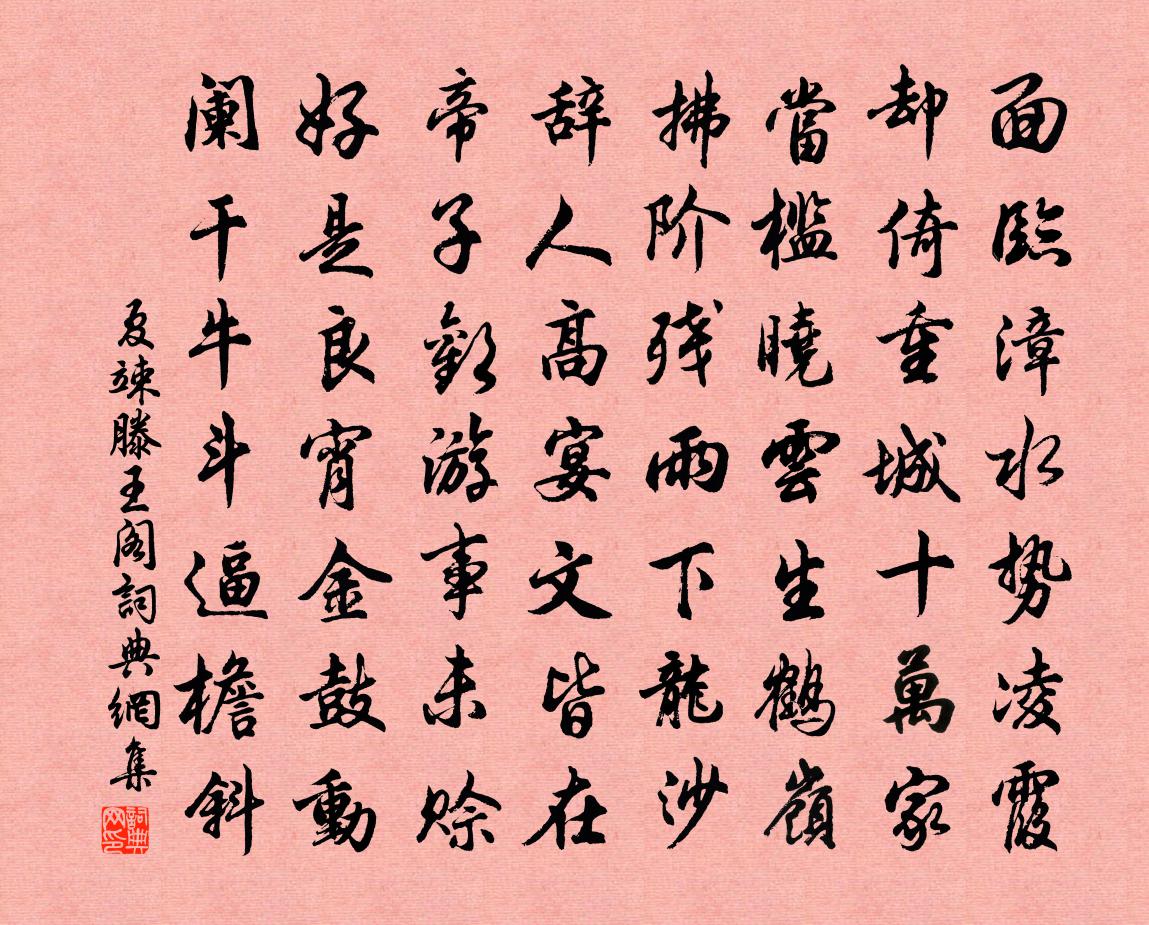 面臨漳水势凌霞
却倚重城十萬家
當檻曉雲生鶴嶺
拂阶残雨下龍沙
辞人高宴文皆在
帝子歡游事未赊
好是良宵金鼓動
阑干牛斗逼檐斜
夏竦滕王阁詞典網集
詞典网印